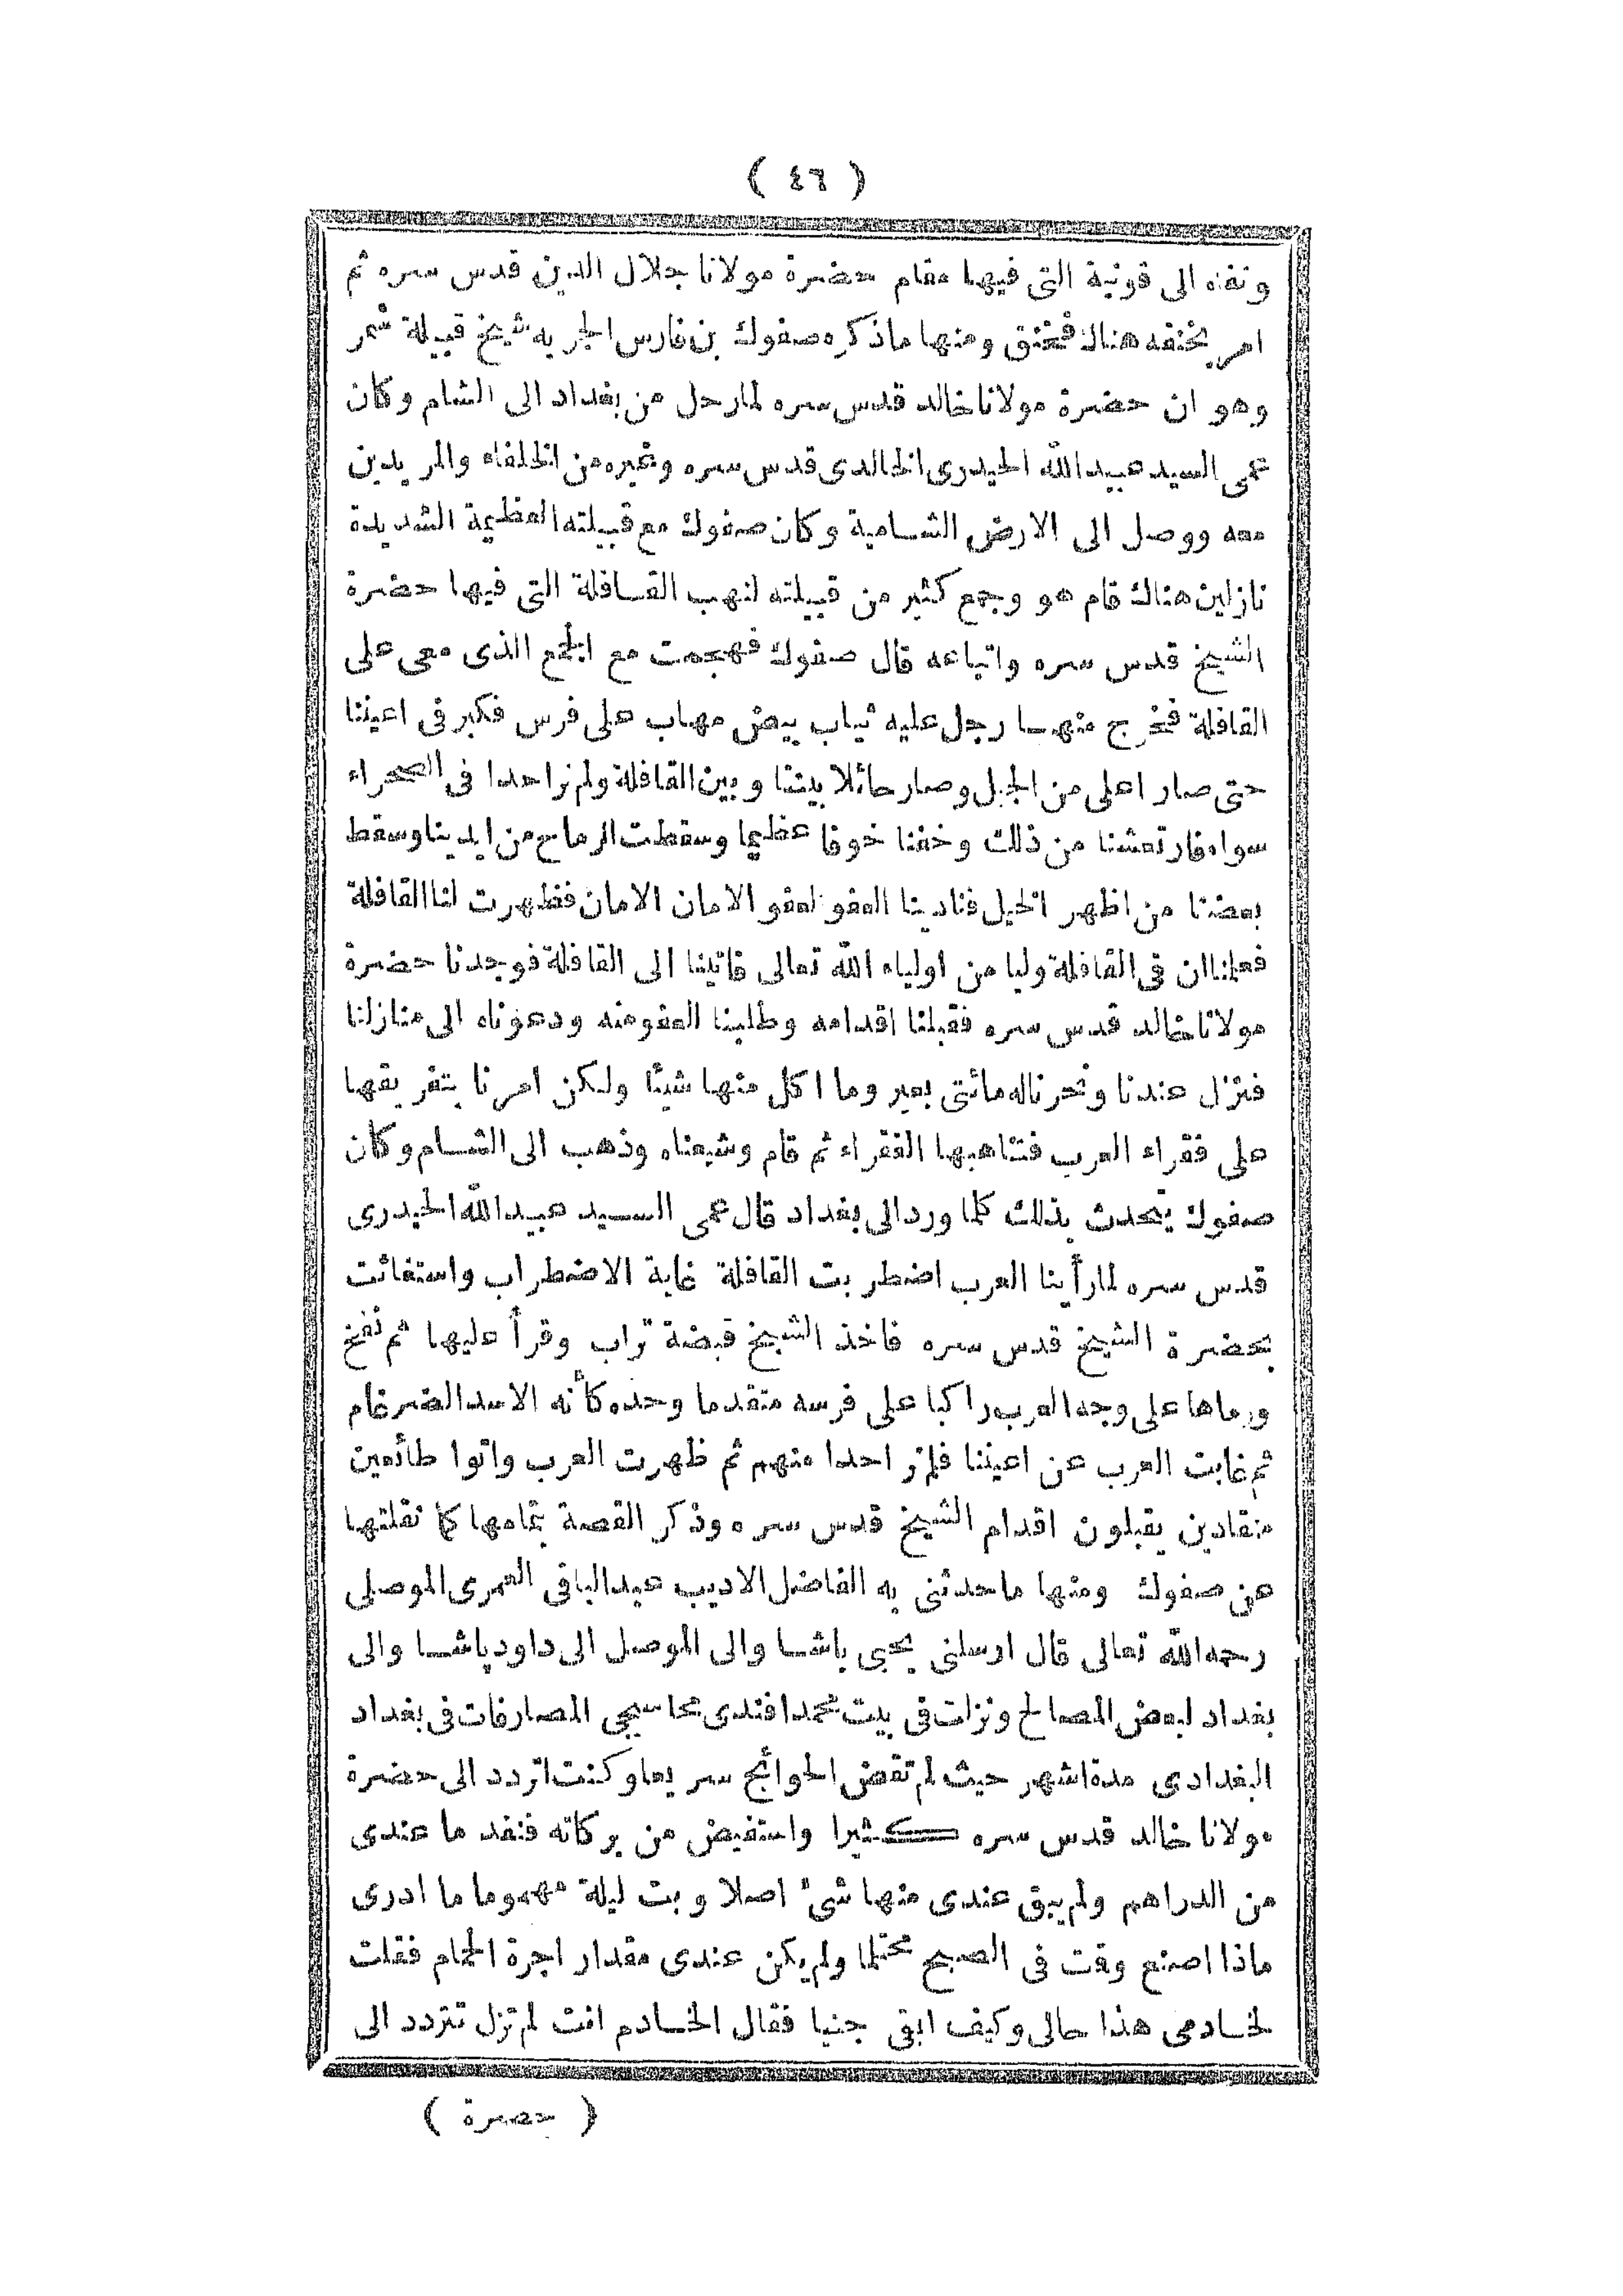 ( ٤٦ )
ونفاه الى قونية التى فيها مقام حضرة مولانا جلال الدين قدس سره ثم
امر بخنقه هناك فخنق ومنها ماذكره صفوك بن فارس الجربه شيخ قبيلة شمر
وهو ان حضرة مولانا خالد قدس سره لما رحل من بغداد الى الشام وكان
عمى السيد عبيدالله الحيدرى الخالدى قدس سره وغيره من الخلفاء والمريدين
معه ووصل الى الارض الشامية وكان صفوك مع قبيلته العظيمة الشديدة
نازلين هناك قام هو وجمع كثير من قبيلته لنهب القافلة التى فيها حضرة
الشيخ قدس سره واتباعه قال صفوك فهجمت مع الجمع الذى معى على
القافلة فخرج منها رجل عليه ثياب بيض مهاب على فرس فكبر فى اعيننا
حتى صار اعلى من الجبل وصار حائلا بيننا وبين القافلة ولم نر احدا فى الصحراء
سواه فارتعشنا من ذلك وخفنا خوفا عظيما وسقطت الرماح من ايدينا وسقط
بعضنا من اظهر الخيل فنادينا العفو العفو الامان الامان فظهرت لنا القافلة
فعلمنا ان فى القافلة وليا من اولياء الله تعالى فاتينا الى القافلة فوجدنا حضرة
مولانا خالد قدس سره فقبلنا اقدامه وطلبنا العفو منه ودعوناه الى منازلنا
فنزل عندنا ونحرنا له مائتى بعير وما اكل منها شيئا ولكن امرنا بتفريقها
على فقراء العرب فتناهبها الفقراء ثم قام وشيعناه وذهب الى الشام وكان
صفوك يتحدث بذلك كلما ورد الى بغداد قال عمى السيد عبيدالله الحيدرى
قدس سره لما رأينا العرب اضطربت القافلة غاية الاضطراب واستغاثت
بحضرة الشيخ قدس سره فاخذ الشيخ قبضة تراب وقرأ عليها ثم نفخ
ورماها على وجه العرب راكبا على فرسه متقدما وحده كأنه الاسد الضرغام
ثم غابت العرب عن اعيننا فلم نر احدا منهم ثم ظهرت العرب واتوا طائعين
منقادين يقبلون اقدام الشيخ قدس سره وذكر القصة بتمامها كما نقلتها
عن صفوك ومنها ماحدثنى به الفاضل الاديب عبدالباقى العمرى الموصلى
رحمه الله تعالى قال ارسلنى يحيى باشا والى الموصل الى داود پاشا والى
بغداد لبعض المصالح ونزلت فى بيت محمد افندى محاسبجى المصارفات فى بغداد
البغدادى مدة اشهر حيث لم تقض الحوائج سريعا وكنت اتردد الى حضرة
مولانا خالد قدس سره كثيرا واستفيض من بركاته فنفد ما عندى
من الدراهم ولم يبق عندى منها شئ اصلا وبت ليلة مهموما ما ادرى
ماذا اصنع وقت فى الصبح محتلما ولم يكن عندى مقدار اجرة الحمام فقلت
لخادمى هذا حالى وكيف ابقى جنبا فقال الخادم انت لم تزل تتردد الى
( حضرة )